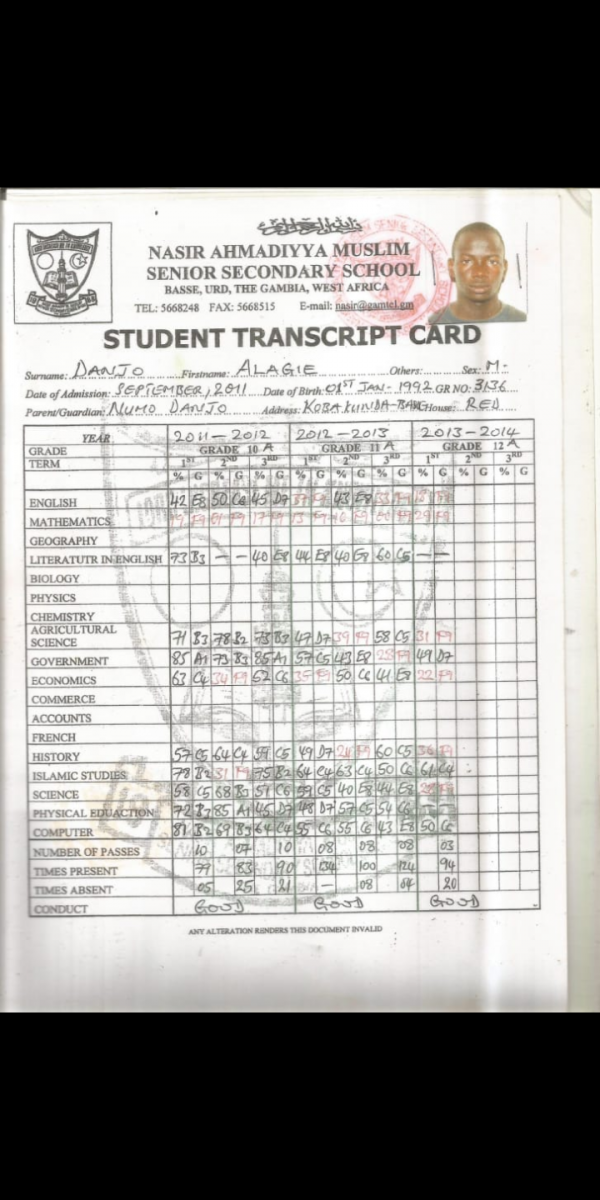 NASIR AHMADIYYA MUSLIM
SENIOR SECONDARY SCHOOL
BASSE, URD, THE GAMBIA, WEST AFRICA
TEL: 5668248 FAX: 5668515 E-mail: nasir@gamtel.gm
STUDENT TRANSCRIPT CARD
Surname: DANJO Firstname: ALAGIE Others: Sex: M-
Date of Admission: SEPTEMBER, 2011 Date of Birth: 01ST JAN- 1992 GR NO: 3136
Parent/Guardian: NUMO DANJO Address: KOBA KUNDA- House: RED
YEAR 2011-2012 2012-2013 2013-2014
GRADE GRADE 10 A GRADE 11 A GRADE 12 A
TERM 1ST 2ND 3RD 1ST 2ND 3RD 1ST 2ND 3RD
% G % G % G % G % G % G % G % G % G
ENGLISH 42 E8 50 C6 45 D7 F9 43 E8 33 F9
MATHEMATICS F9 F9 17 F9 13 F9 F9 F9 29 F9
GEOGRAPHY
LITERATUTR IN ENGLISH 73 B3 — — 40 E8 44 E8 40 E8 60 C5 — —
BIOLOGY
PHYSICS
CHEMISTRY
AGRICULTURAL SCIENCE 71 B3 78 B2 73 B3 47 D7 39 F9 58 C5 31 F9
GOVERNMENT 85 A1 73 B3 85 A1 57 C5 43 E8 28 F9 49 D7
ECONOMICS 63 C4 34 F9 52 C6 35 F9 50 C6 41 E8 22 F9
COMMERCE
ACCOUNTS
FRENCH
HISTORY 57 C5 64 C4 59 C5 49 D7 F9 60 C5 36 F9
ISLAMIC STUDIES 78 B2 31 F9 75 B2 64 C4 63 C4 50 C6 61 C4
SCIENCE 58 C5 68 B3 51 C6 59 C5 40 E8 44 E8 F9
PHYSICAL EDUACTION 72 B3 85 A1 45 D7 48 D7 57 C5 54 C6
COMPUTER 81 B2 69 B3 64 C4 55 C6 55 C6 43 E8 50 C6
NUMBER OF PASSES 10 07 10 08 08 08 03
TIMES PRESENT 79 83 90 134 100 124 94
TIMES ABSENT 05 25 21 — 08 04 20
CONDUCT GOOD GOOD GOOD
ANY ALTERATION RENDERS THIS DOCUMENT INVALID